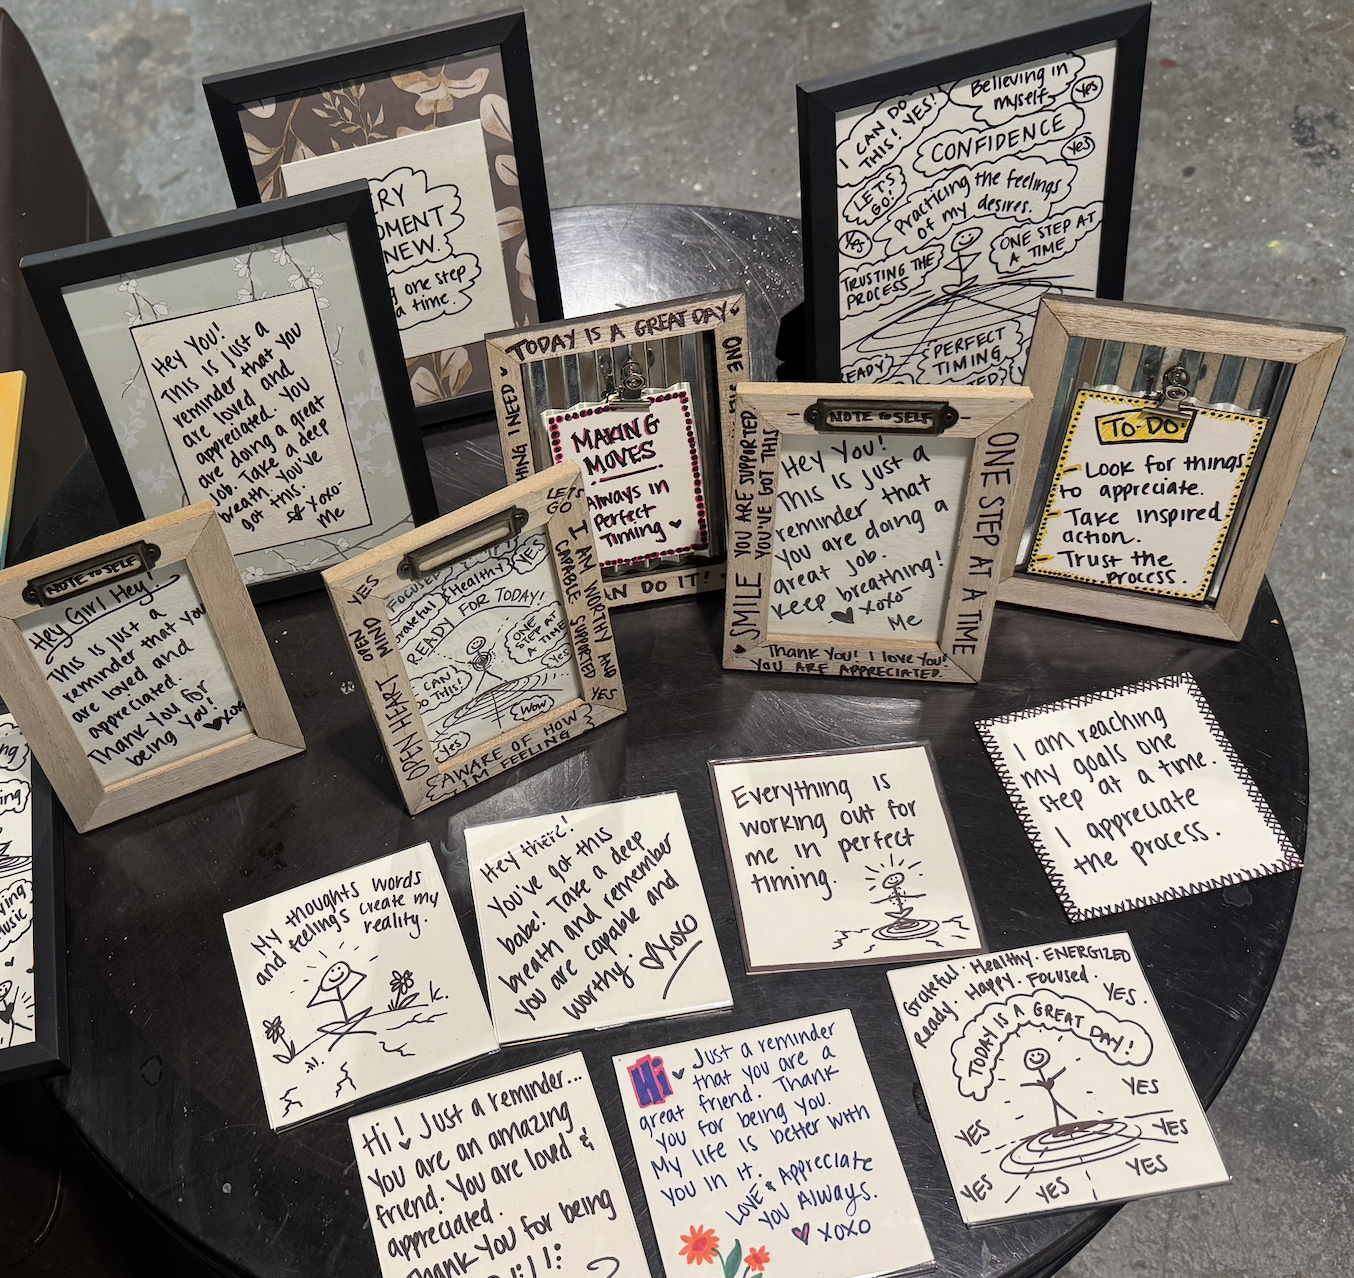 MOMENT
NEW.
one step
a time.
I CAN DO
THIS! YES!
Believing in
myself
Yes
CONFIDENCE
Yes
LET'S
GO!
Practicing the feelings
of my desires.
Yes
TRUSTING THE
PROCESS
ONE STEP AT
A TIME
PERFECT
TIMING
Hey You!
This is just a
reminder that you
are loved and
appreciated. You
are doing a great
job. Take a deep
breath. You've
got this.
xoxo
Me
TODAY IS A GREAT DAY
I NEED
ONE
MAKING
MOVES
Always in
Perfect
Timing
DO IT!
NOTE TO SELF
YOU ARE SUPPORTED
YOU'VE GOT THIS
SMILE
Hey You!
This is just a
reminder that
you are doing a
great job.
Keep breathing!
xoxo
Me
ONE STEP AT A TIME
Thank You! I love You!
YOU ARE APPRECIATED.
TO-DO:
- Look for things
to appreciate.
- Take inspired
action.
- Trust the
process.
NOTE TO SELF
Hey Girl Hey!
This is just a
reminder that you
are loved and
appreciated.
Thank you for
being You!
xoxo
LET'S
GO
YES
OPEN MIND
OPEN HEART
I AM WORTHY AND
CAPABLE SUPPORTED
YES
Focused
Grateful
Healthy
YES
READY FOR TODAY!
ONE
STEP AT
A TIME
I CAN DO
THIS!
Yes
Wow
Yes
AWARE OF HOW
I'M FEELING
My thoughts words
and feelings create my
reality.
Hey there!
You've got this
babe! Take a deep
breath and remember
you are capable and
worthy.
xoxo
Everything is
working out for
me in perfect
timing.
I am reaching
my goals one
step at a time.
I appreciate
the process.
Hi! Just a reminder...
You are an amazing
friend. You are loved &
appreciated.
Thank You for being
Hi
Just a reminder
that you are a
great friend. Thank
you for being you.
My life is better with
you in it.
LOVE & Appreciate
you Always.
xoxo
Grateful. Healthy. ENERGIZED
Ready. Happy. Focused.
YES.
TODAY IS A GREAT DAY!
YES
YES
YES
YES
YES
YES